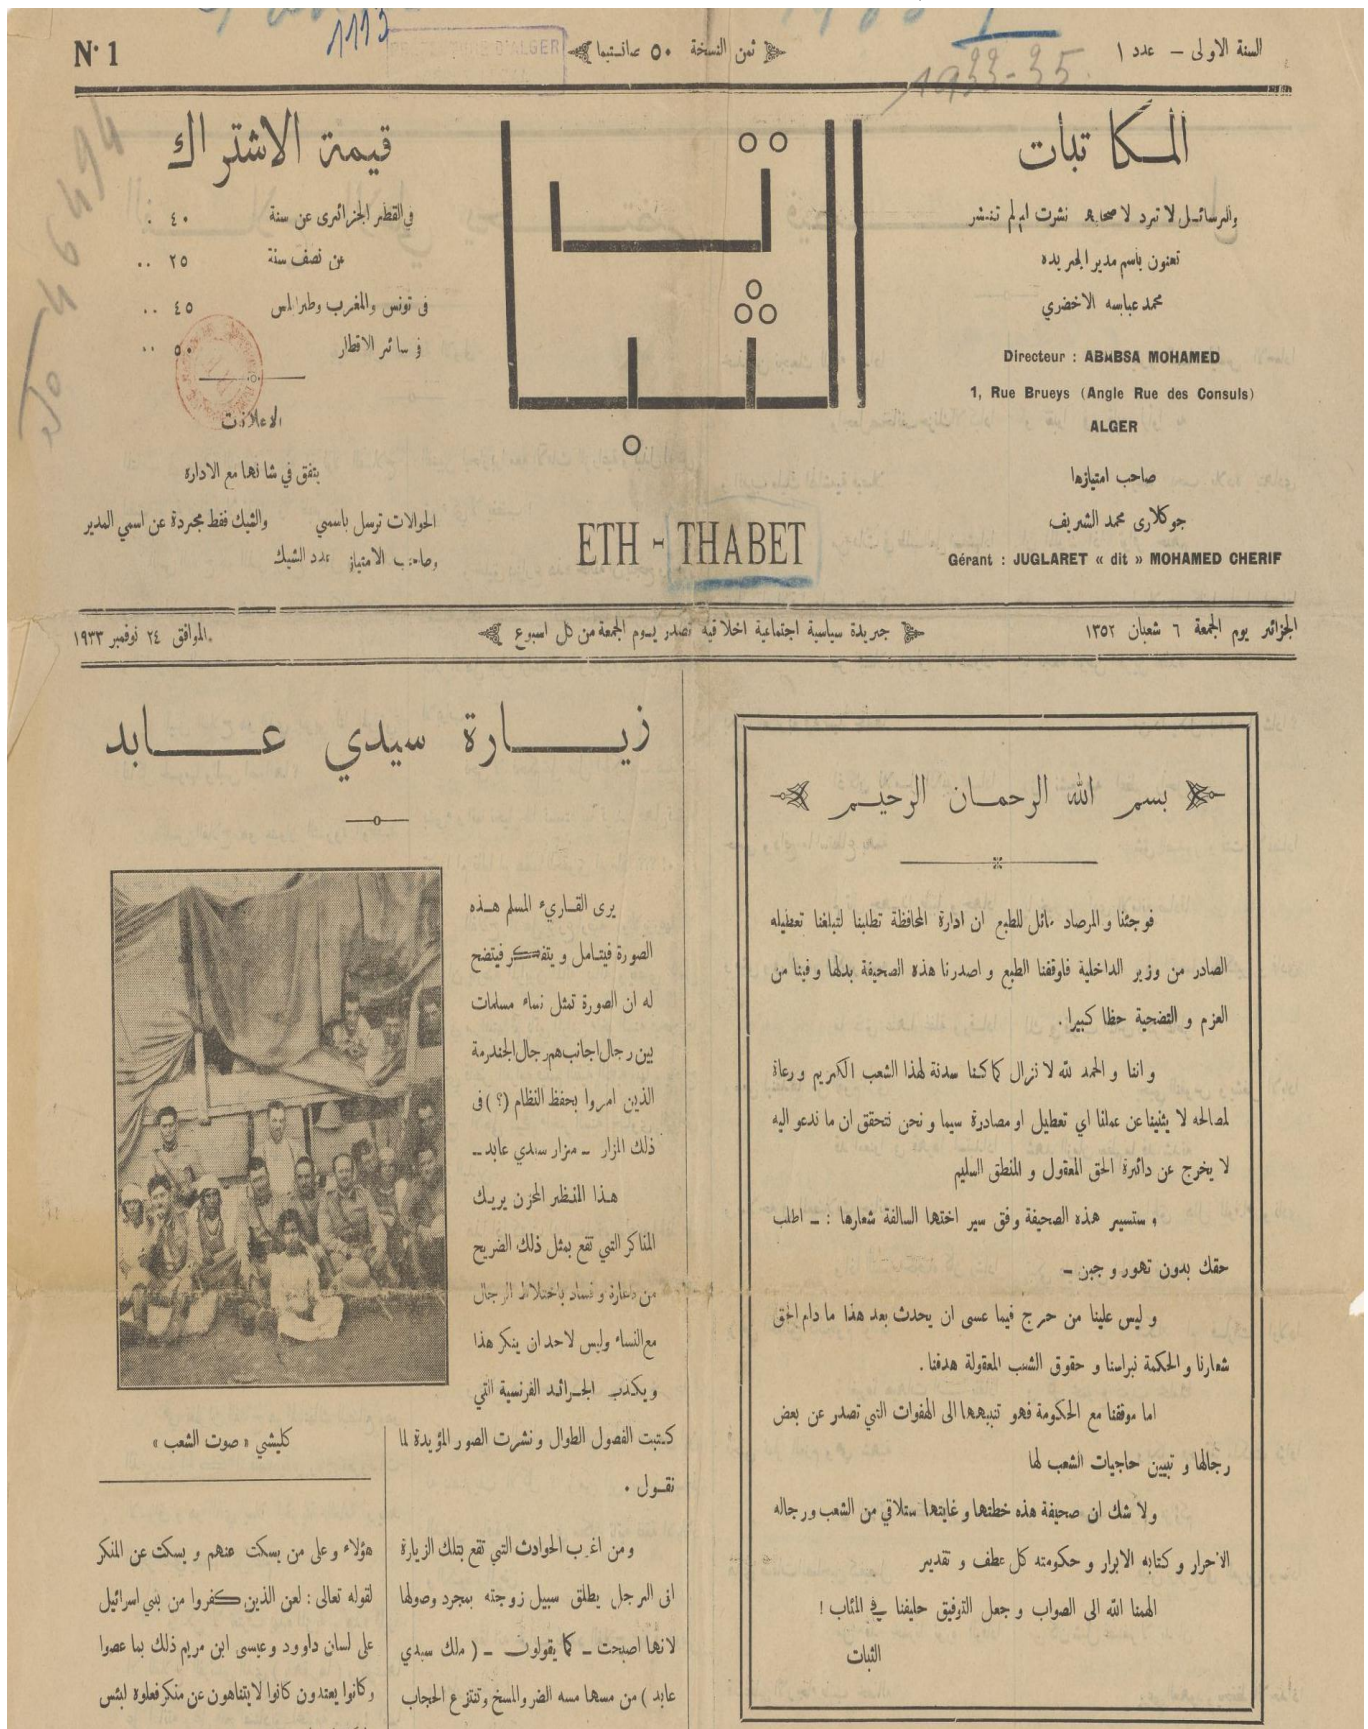 السنة الاولى — عدد ١
ثمن النسخة ٥٠ صانتيما
N° 1
1113
1933-35
المكاتبات
والرسائل لا ترد لاصحابها نشرت ام لم تنشر
تعنون باسم مدير الجريدة
محمد عبابسه الاخضري
Directeur : ABABSA MOHAMED
1, Rue Brueys (Angle Rue des Consuls)
ALGER
صاحب امتيازها
جوكلارى محمد الشريف
Gérant : JUGLARET « dit » MOHAMED CHERIF
الثبات
ETH - THABET
قيمة الاشتراك
في القطر الجزائرى عن سنة ٤٠ ..
عن نصف سنة ٢٥ ..
فى تونس والمغرب وطرابلس ٤٥ ..
في سائر الاقطار ٥٠ ..
الاعلانات
يتفق في شانها مع الادارة
الحوالات ترسل باسمي والشيك فقط مجردة عن اسمي المدير
وصاحب الامتياز عدد الشيك
الجزائر يوم الجمعة ٦ شعبان ١٣٥٢
جريدة سياسية اجتماعية اخلاقية تصدر يوم الجمعة من كل اسبوع
الموافق ٢٤ نوفمبر ١٩٣٣
بسم الله الرحمان الرحيم
فوجئنا و المرصاد مائل للطبع ان ادارة المحافظة تطلبنا لتبلغنا تعطيله
الصادر من وزير الداخلية فاوقفنا الطبع و اصدرنا هذه الصحيفة بدلها وفينا من
العزم و التضحية حظا كبيرا .
و اننا و الحمد لله لا نزال كما كنا سدنة لهذا الشعب الكريم و رعاة
لمصالحه لا يثنينا عن عملنا اي تعطيل او مصادرة سيما و نحن نتحقق ان ما ندعو اليه
لا يخرج عن دائرة الحق المعقول و المنطق السليم
و ستسير هذه الصحيفة وفق سير اختها السالفة شعارها : — اطلب
حقك بدون تهور و جبن —
و ليس علينا من حرج فيما عسى ان يحدث بعد هذا ما دام الحق
شعارنا و الحكمة نبراسنا و حقوق الشعب المعقولة هدفنا .
اما موقفنا مع الحكومة فهو تنبيهها الى الهفوات التي تصدر عن بعض
رجالها و تبيين حاجيات الشعب لها
ولا شك ان صحيفة هذه خطتها و غايتها ستلاقي من الشعب ورجاله
الاحرار و كتابه الابرار و حكومته كل عطف و تقدير
الهمنا الله الى الصواب و جعل التوفيق حليفنا في المئاب !
الثبات
زيارة سيدي عابد
يرى القارىء المسلم هذه
الصورة فيتامل و يتفكر فيتضح
له ان الصورة تمثل نساء مسلمات
بين رجال اجانب هم رجال الجندرمة
الذين امروا بحفظ النظام (؟) فى
ذلك المزار — مزار سيدي عابد —
هذا المنظر المحزن يريك
المناكر التي تقع بمثل ذلك الضريح
من دعارة و فساد باختلاط الرجال
مع النساء وليس لاحد ان ينكر هذا
و يكذب الجرائد الفرنسية التي
كتبت الفصول الطوال و نشرت الصور المؤيدة لما
نقول .
ومن اغرب الحوادث التي تقع بتلك الزيارة
ان الرجل يطلق سبيل زوجته بمجرد وصولها
لانها اصبحت — كما يقولون — ( ملك سيدي
عابد ) من مسها مسه الضر والمسخ وتنتزع الحجاب
كليشي « صوت الشعب »
هؤلاء وعلى من يسكت عنهم و يسكت عن المنكر
لقوله تعالى : لعن الذين كفروا من بني اسرائيل
على لسان داوود وعيسى ابن مريم ذلك بما عصوا
وكانوا يعتدون كانوا لا يتناهون عن منكر فعلوه لبئس